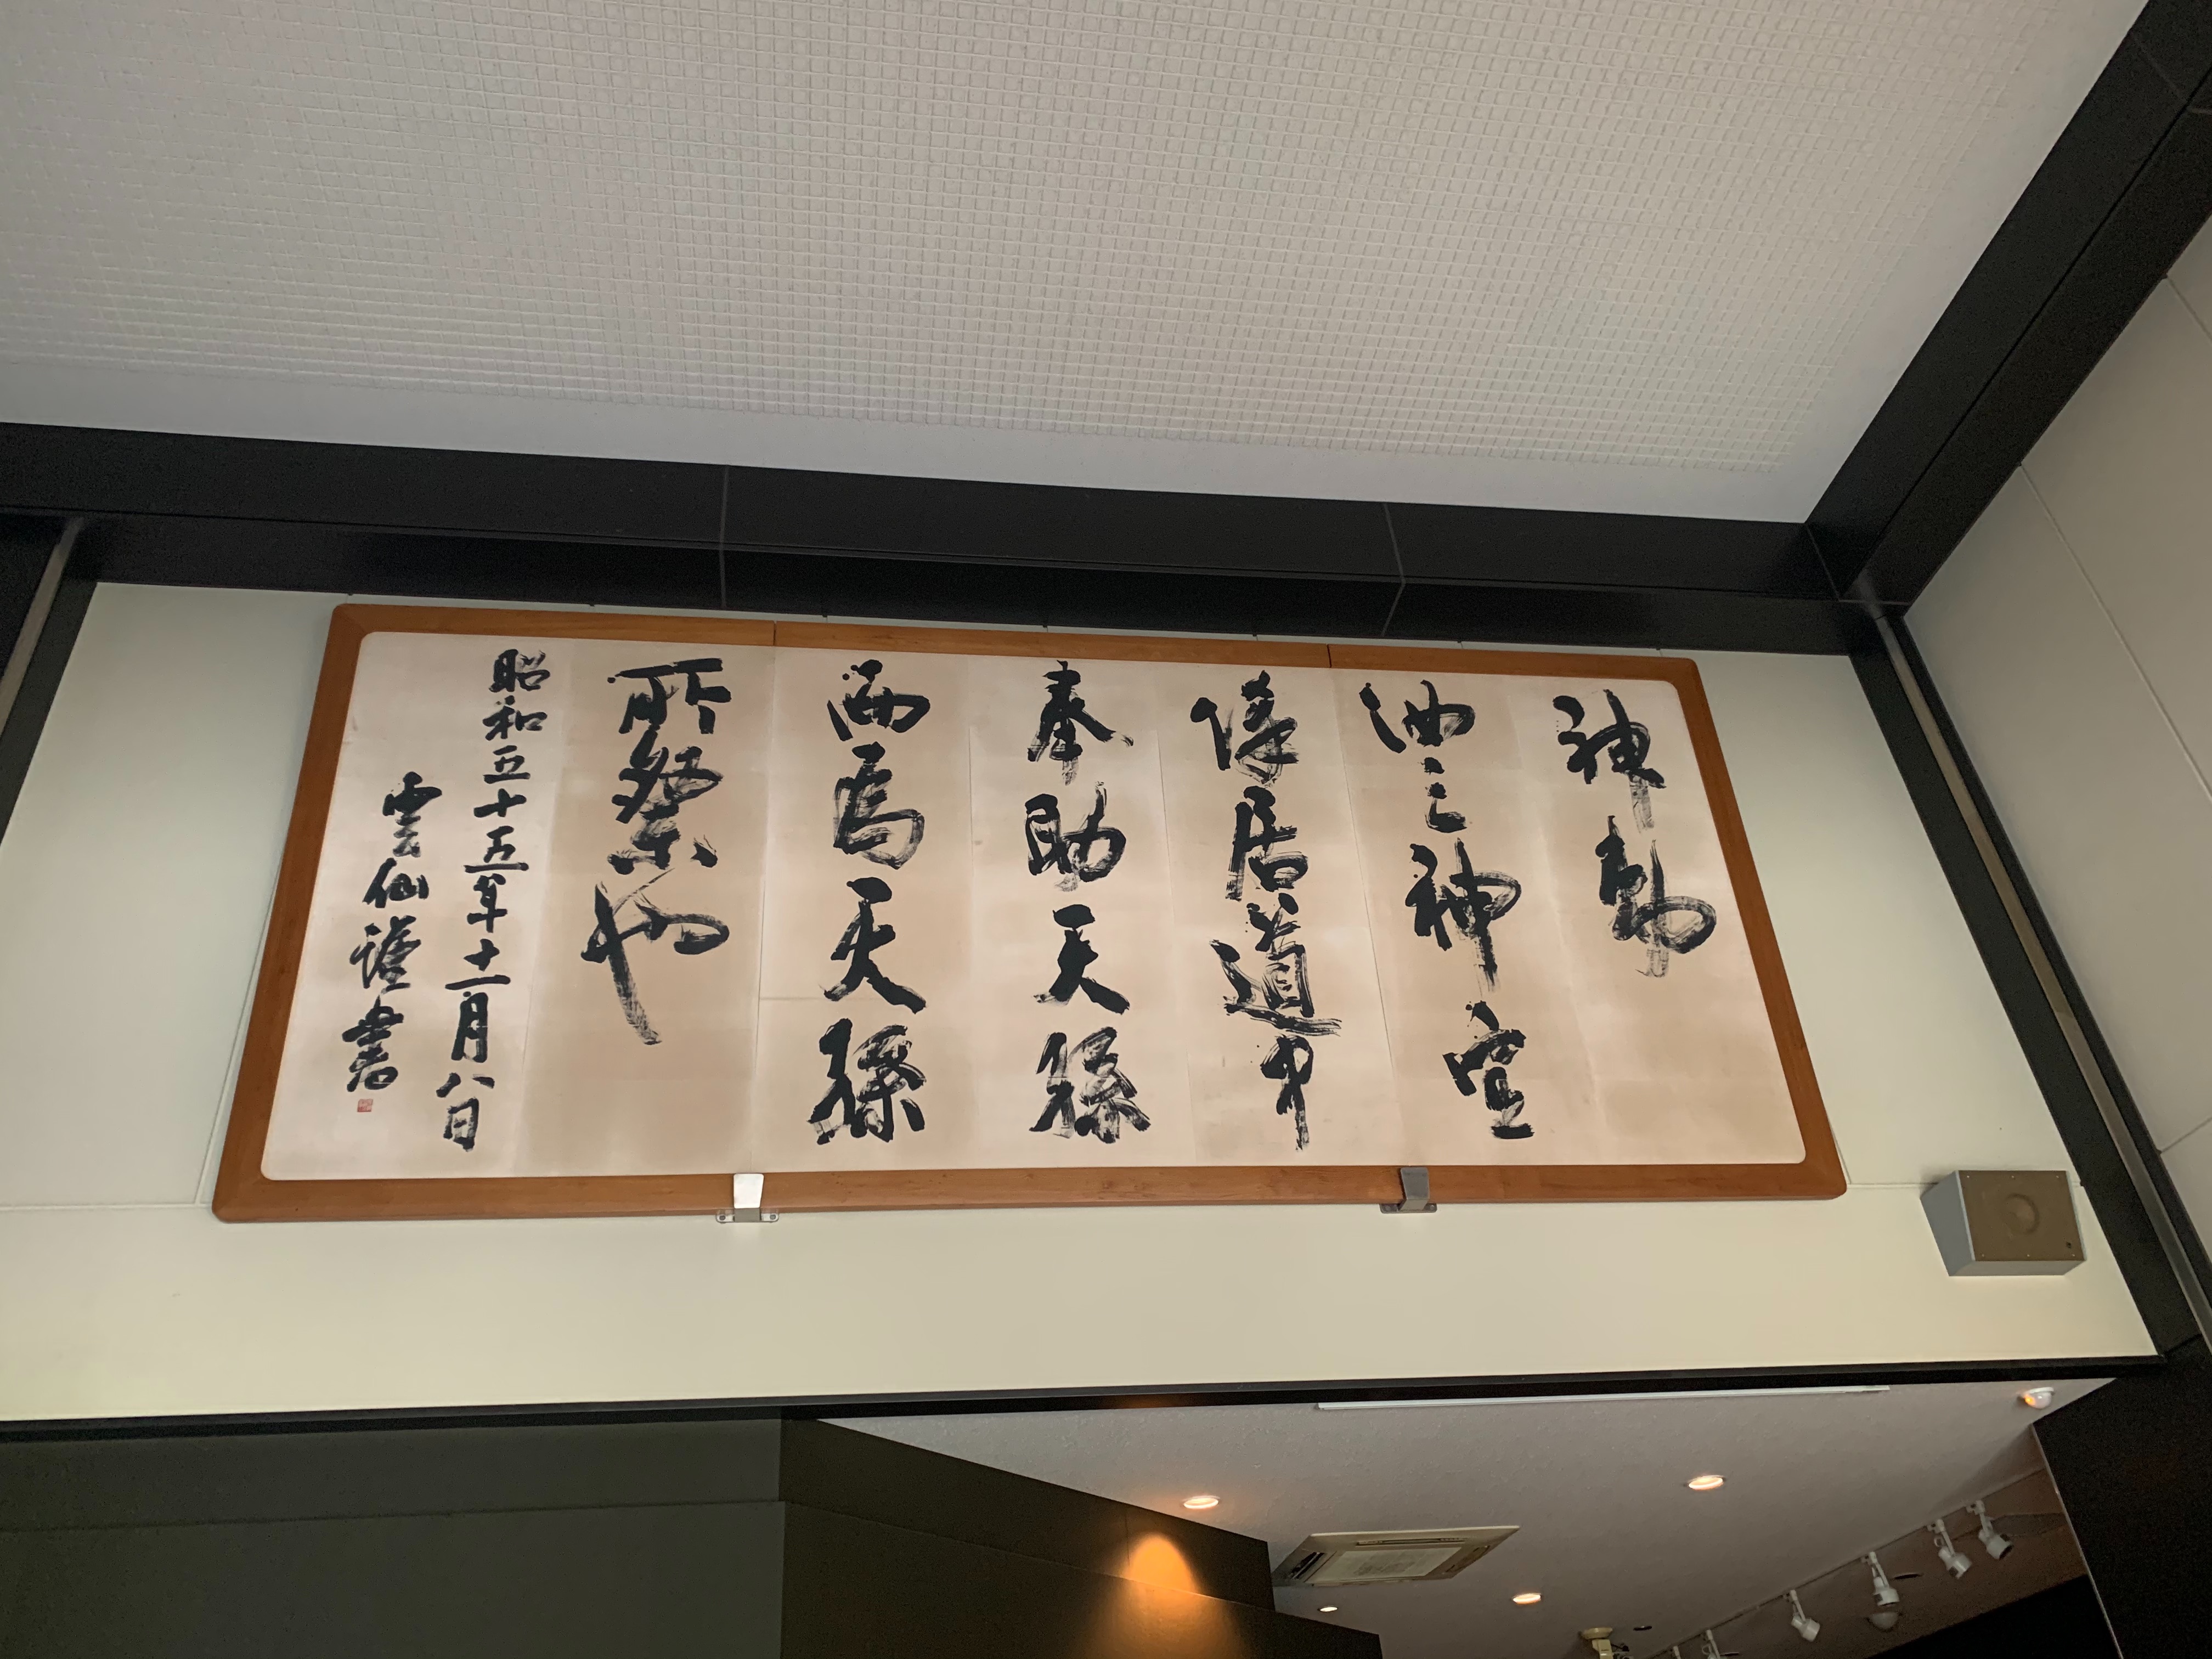 神勅
汝三神宜
降居道中
奉助天孫
而為天孫
所祭也
昭和五十五年十一月八日
雲仙謹書